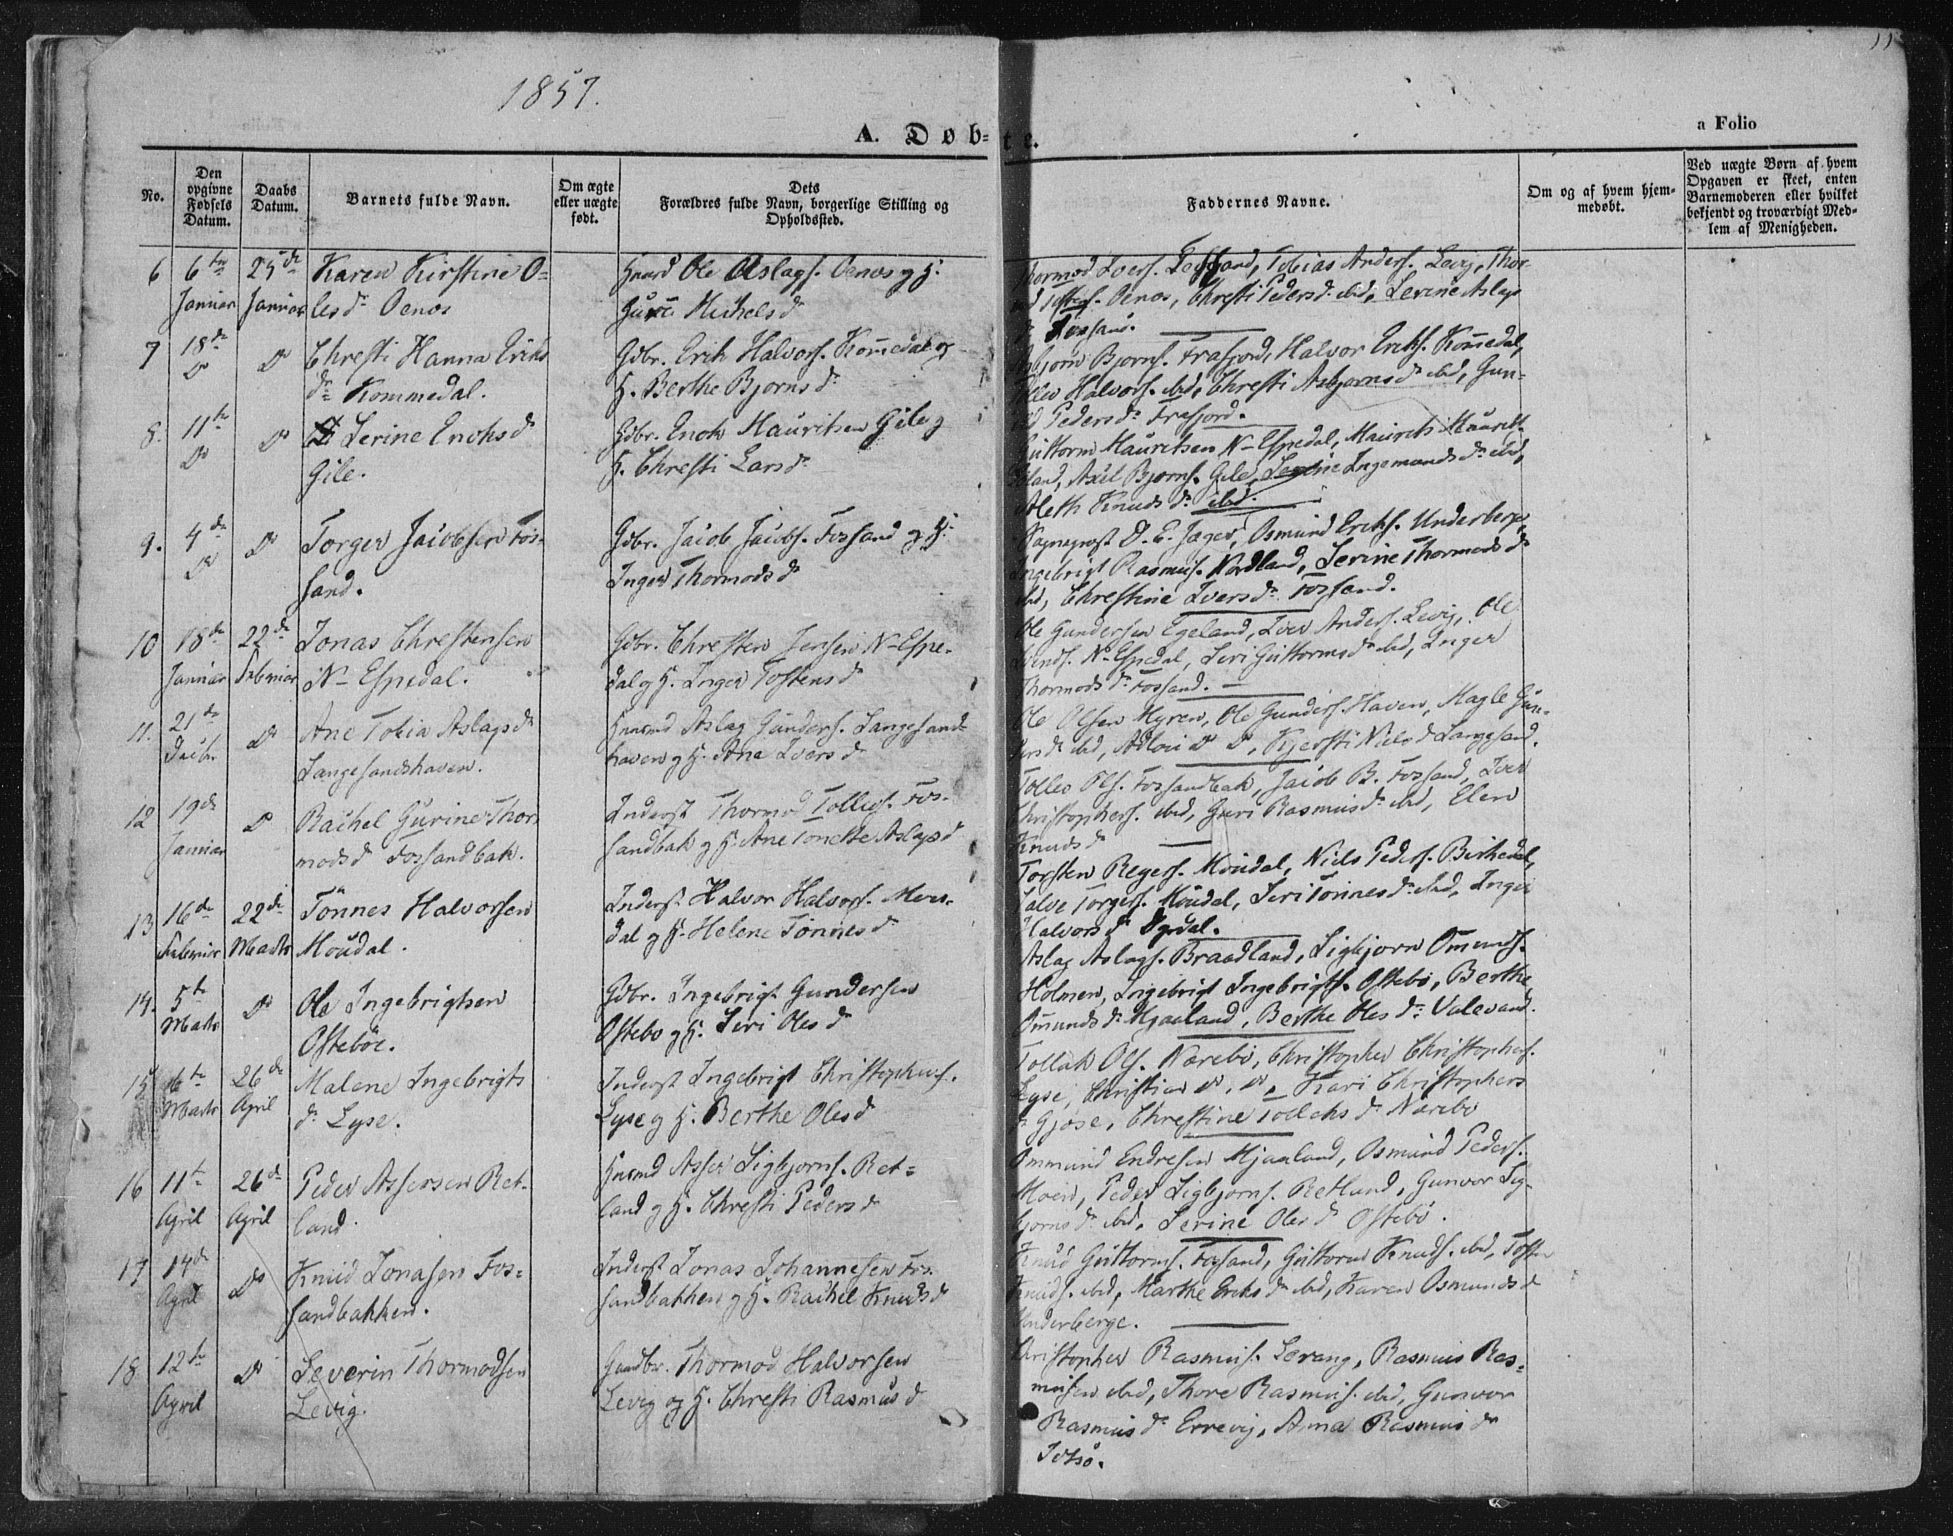 1857.
A. Døb-
te.
a Folio
No.
Den opgivne Fødsels Datum.
Daabs Datum.
Barnets fulde Navn.
Om ægte eller uægte født.
Dets Forældres fulde Navn, borgerlige Stilling og Opholdssted.
Faddernes Navne.
Om og af hvem hjem-
medøbt.
Ved uægte Børn af hvem
Opgaven er skeet, enten
Barnemoderen eller hvilket
bekjendt og troværdigt Med-
lem af Menigheden.
6 6te Januar 25de Januar
Karen Kirstine O-
lesdr Oenos
Huusmd Ole Aslags. Oenos og H.
Guri Michelsd
Thormod Ivers. Fossand, Tobias Anders. Levig, Thor-
Tostens. Oenos, Chresti Pedersdr ibd, Serine Aslags
dr Fossand.
7 18de Do Do
Chresti Hanna Eriks
dr Kommedal.
Gdbr. Erik Halvors. Kom̄edal og
H. Berthe Bjørnsdr
Asbjørn Bjørns. Frafjord, Halvor Eriks. Kom̄edal,
Tollev Halvors. ibd, Chresti Asbjørnsdr ibd, Gun-
ild Pedersdr Frafjord.
8. 11te Do Do
Serine Enoksd
Gile.
Gdbr. Enok Mauritsen Gile og
H. Chresti Larsdr
Guttorm Mauritsen N-Espedal, Maurits Maurits.
Axel Bjørns. Gile, Serine Ingemundsdr ibd,
Aleth Knudsdr ibd.
9. 4de Do Do
Torger Jacobsen Fos-
sand.
Gdbr. Jacob Jacobs. Fossand og H.
Inger Thormodsd
Sognepræst D. E. Jæger, Osmund Eriks. Underberge,
Ingebrigt Rasmus. Nordland, Serine Thormodsdr
ibd, Chrestine Iversdr Fossand.
10 18de Januar 22de Februar
Jonas Chrestensen
N-Espedal.
Gdbr. Chresten Jensen N-Espe-
dal og H. Inger Tostensd
Ole Gundersen Egeland, Iver Anders. Levig, Ole
N-Espedal, Siri Guttormsdr ibd, Inger
Thormodsdr Fossand.
11. 21de Decbr Do
Ane Tobia Aslagsdr
Langesandshaven.
Huusmd Aslag Gunders. Langesand-
haven og H. Ane Iversd
Ole Olsen Myren, Ole Gunders. Haven, Magle Gun-
dersdr ibd, Do Do, Kjersti Nielsd Langesand.
12 19de Januar Do
Rachel Gurine Thor
modsd Fossandbak.
Inderst Thormod Tollevs. Fos-
sandbak og H. Ane Tonette Aslagsd
Tollev Ols. Fossandbak, Jacob B. Fossand, Iver
Christophers. ibd, Guri Rasmusdr ibd, Elen
Knudsd
13 16de Februar 22de Marts
Tönnes Halvorsen
Moudal.
Inderst Halvor Halvors. Mou-
dal og H. Helene Tönnesd
Torsten Reyers. Moudal, Niels Peders. Birkedal,
Talve Torgers. Moudal, Siri Tönnesdr ibd, Inger
Halvorsdr Dyrdal.
14. 5te Marts Do
Ole Ingebrigtsen
Ostebøe.
Gdbr. Ingebrigt Gundersen
Ostebo og H. Siri Olesd
Aslag Aslags. Braadland, Sigbjørn Omunds.
Holmen, Ingebrigt Ingebrigts. Ostebö, Berthe
Omundsdr Mjaaland, Berthe Olesdr Valevand.
15 16te Marts 26de April
Malene Ingebrigts
dr Lyse.
Inderst Ingebrigt Christophers.
Lyse og H. Berthe Olesd
Tollak Ols. Narebö, Christopher Christophers.
Lyse, Christian Do, Do, Kari Christophers
dr Gjøse, Chrestine Tollaksdr Narebö
16 11te April 26de April
Peder Assersen Ret-
land.
Huusmd Asser Sigbjørns. Ret-
land og H. Chresti Pedersd
Ommund Endresen Mjaaland, Osmund Peders.
Moen, Peder Sigbjørns. Retland, Gunvor Sig-
bjørnsdr ibd, Serine Olesd Ostebö.
17 14de April Do
Knud Jonasen Fos-
sandbakken.
Inderst Jonas Johannesen Fos-
sandbakken og H. Rachel Knudsd
Knud Guttorms. Fossand, Guttorm Knuds. ibd, Tosten
Knuds. ibd, Marthe Eriksdr ibd, Karen Osmundsd
Underberge.
18 12te April Do
Severin Thormodsen
Levig.
Gaardbr. Thormod Halvorsen
Levig og H. Chresti Rasmusd
Christopher Rasmus. Lerang, Rasmus Ras-
musen ibd, Thore Rasmus. ibd, Gunvor
Rasmusdr Errevig, Anna Rasmusdr
Idsö.